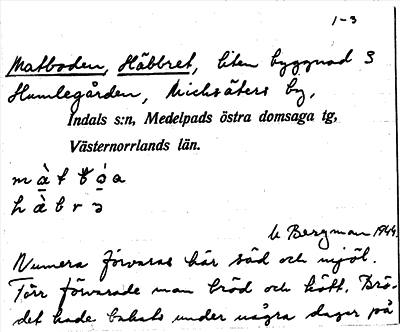 1-3
Matboden, Häbbret, liten byggnad S
Humlegården, Nichsäters by,
Indals s:n, Medelpads östra domsaga tg,
Västernorrlands län.
h à b r ɔ
U Bergman 1944.
Numera förvaras här säd och mjöl.
Förr förvarade man bröd och kött. Brö-
det hade bakats under några dagar på